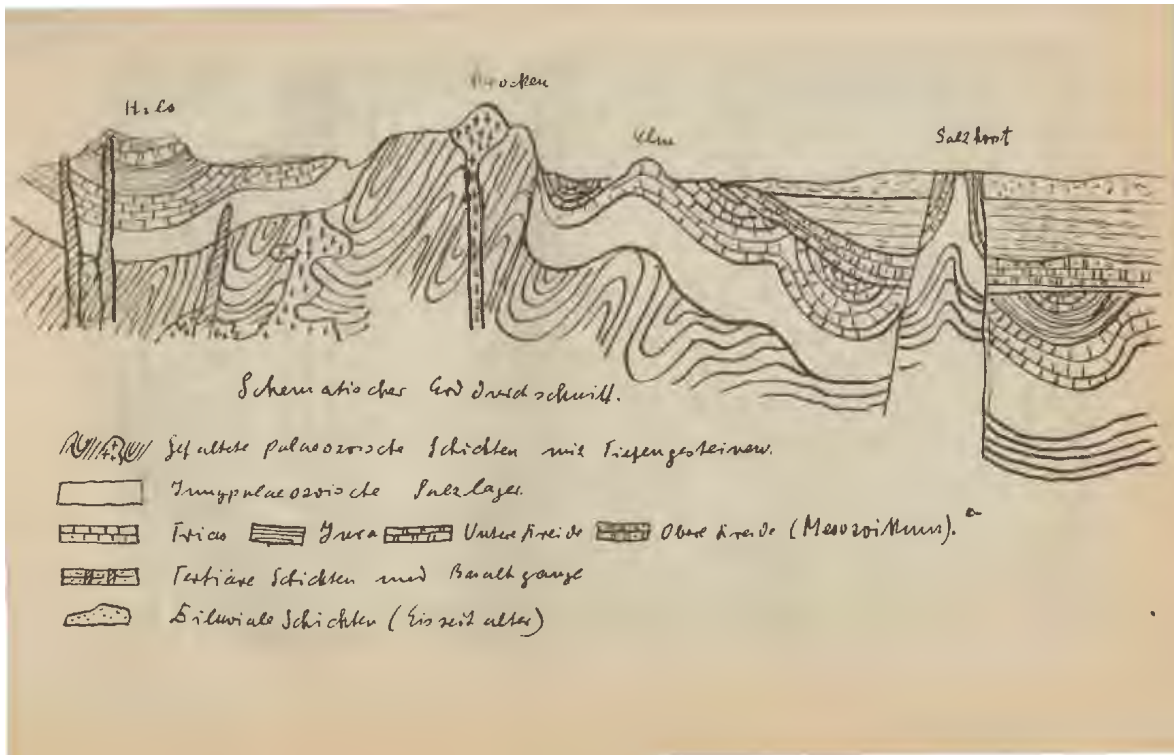 Hils
Brocken
Elm
Salzhorst
Schematischer Erddurchschnitt.
Gefaltete palaeozoische Schichten mit Tiefengesteinen.
Jungpalaeozoische Salzlager.
Trias Jura Untere Kreide Obere Kreide (Mesozoikum).
Tertiäre Schichten und Basaltgänge
Diluviale Schichten (Eiszeitalter)